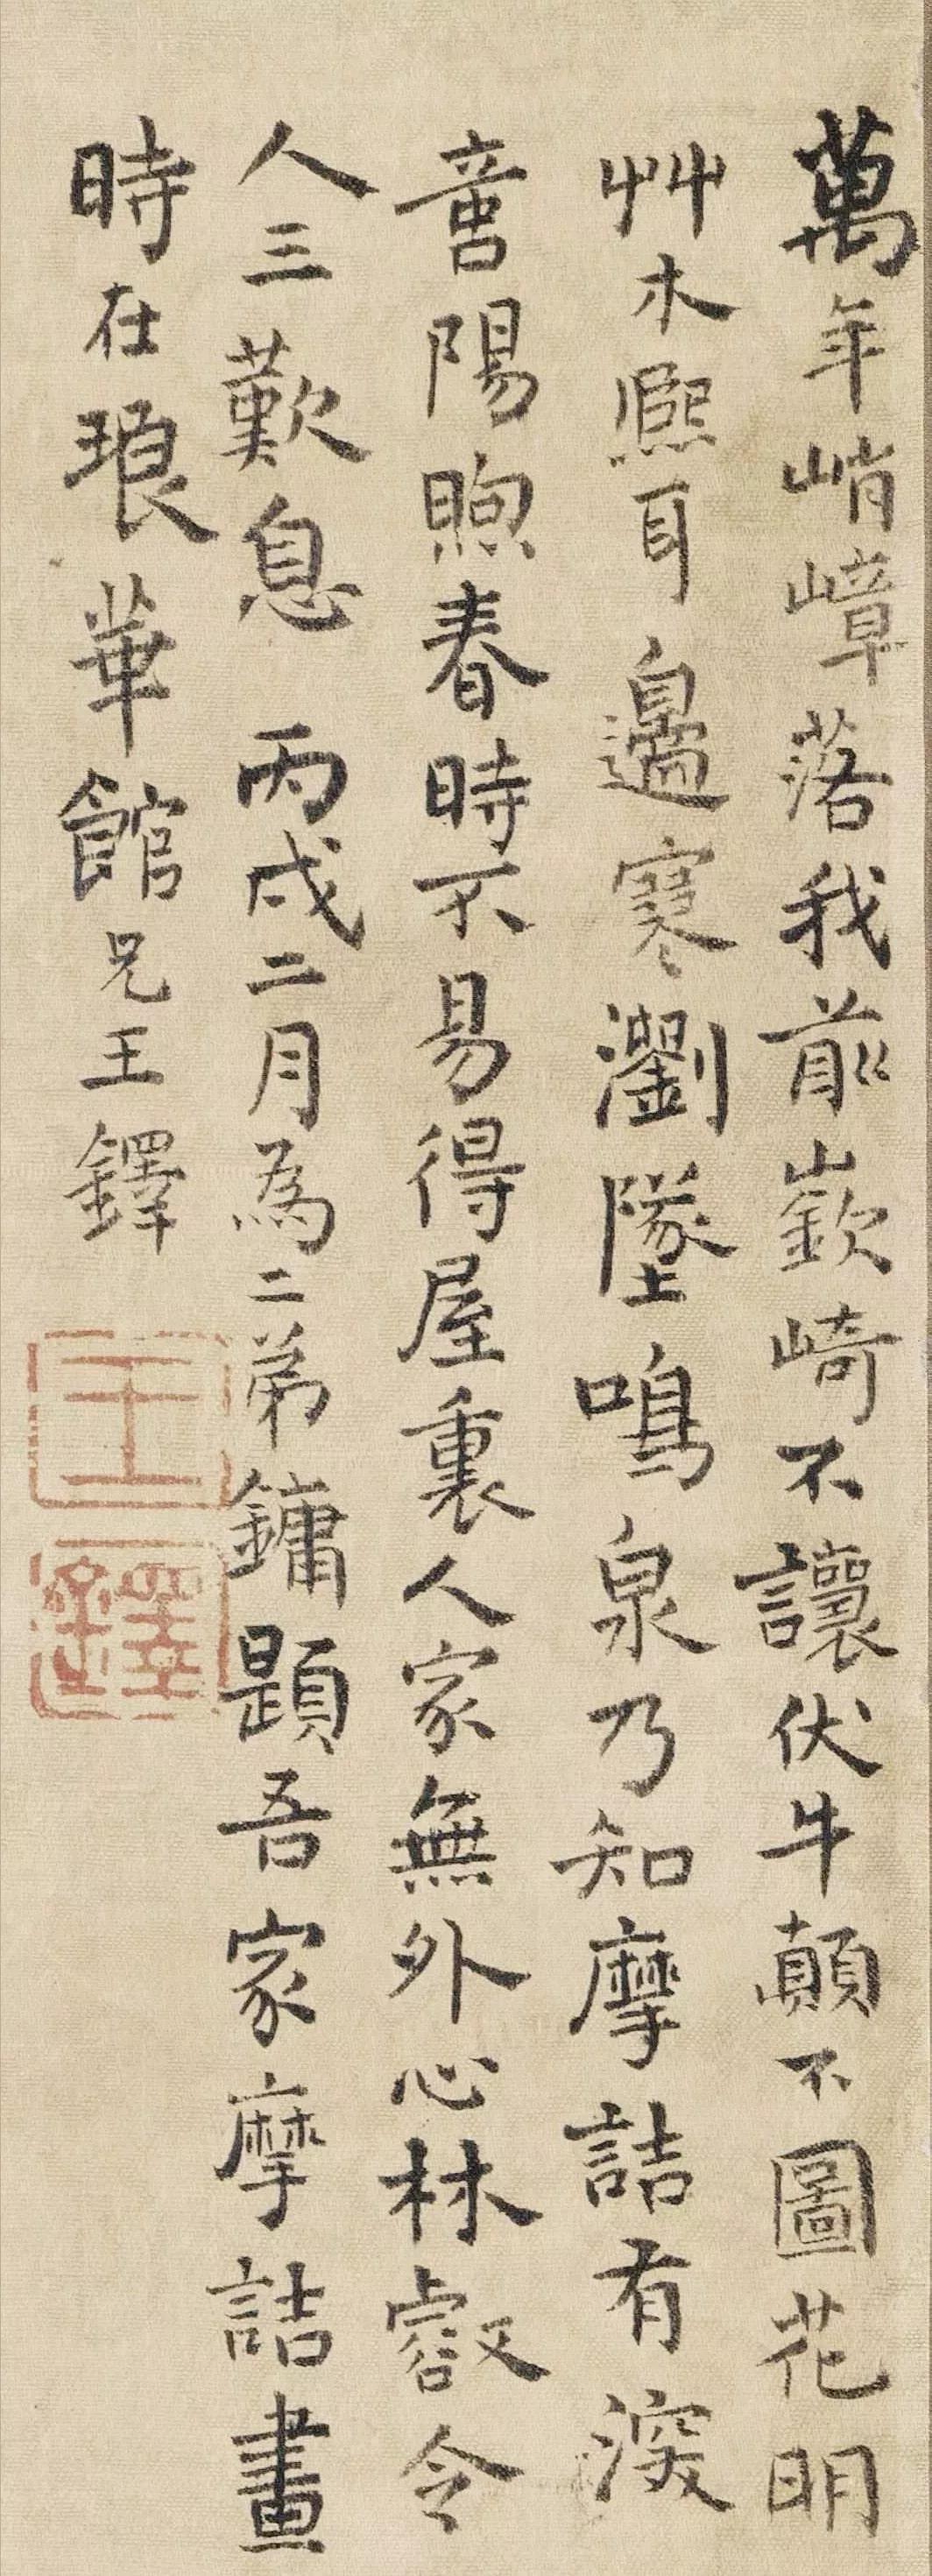 萬年峭嶂落我前嶔崎不讓伏牛顛不圖花明
艸木熙耳邊寒瀏墜鳴泉乃知摩詰有深
意陽煦春時不易得屋裏人家無外心林壑令
人三歎息 丙戌二月為二弟鏞題吾家摩詰畫
時在琅華館兄王鐸
王鐸